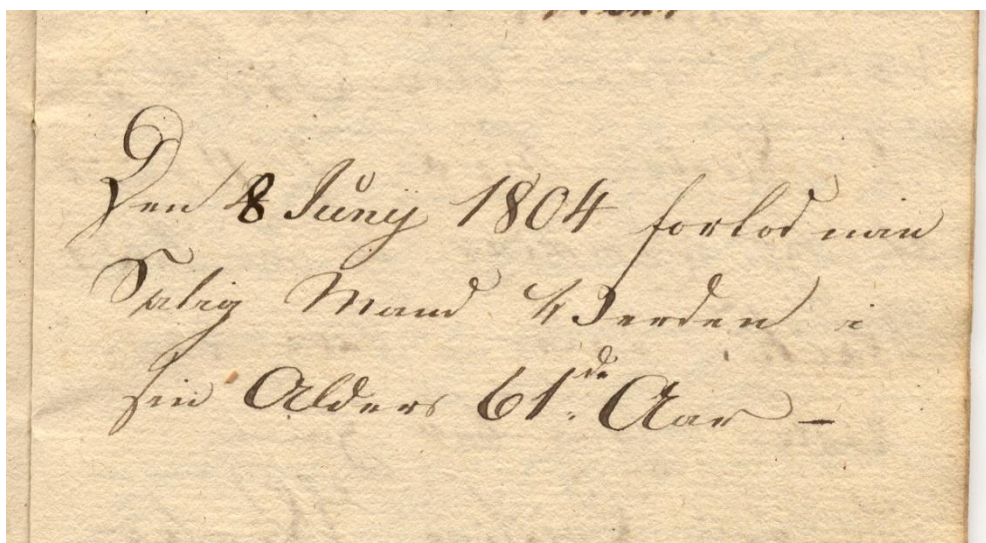 Den 8 Juny 1804 forlod min
Salig Mand Verden i
sin Alders 61de Aar –